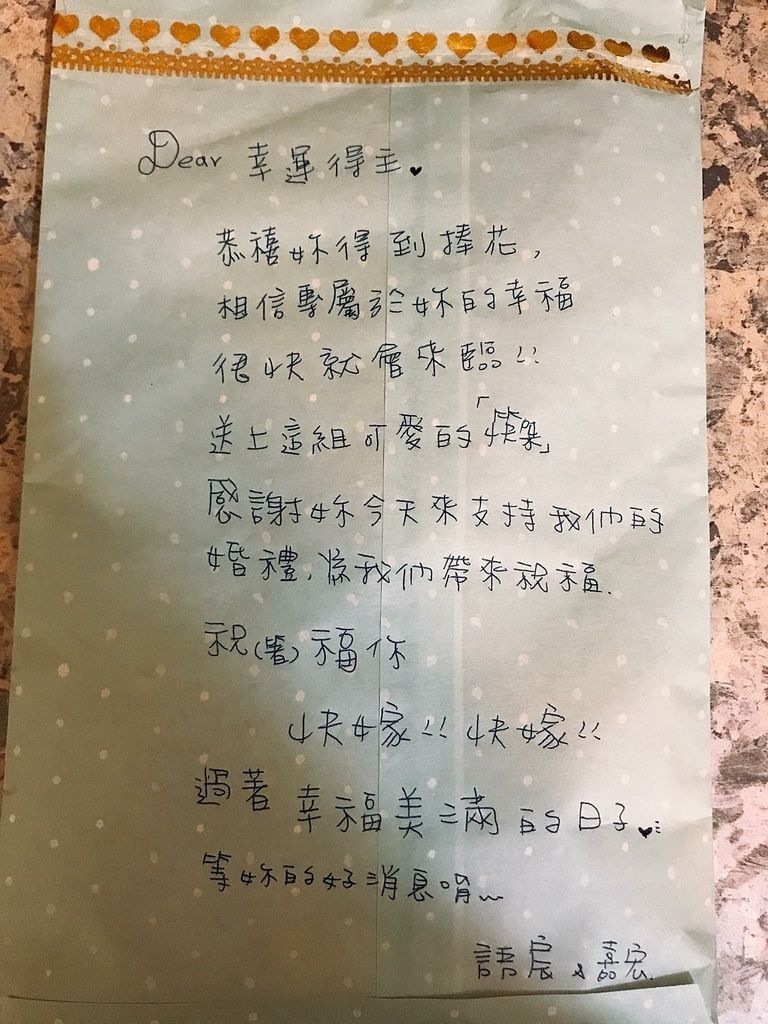 Dear 幸運得主♥
恭禧妳得到捧花,
相信專屬於妳的幸福
很快就會來臨!!
送上這組可愛的「筷架」
感謝妳今天來支持我們的
婚禮,為我們帶來祝福.
祝(箸)福你
快嫁!! 快嫁!!
過著幸福美滿的日子♥
等妳的好消息唷~
語宸 & 嘉宏